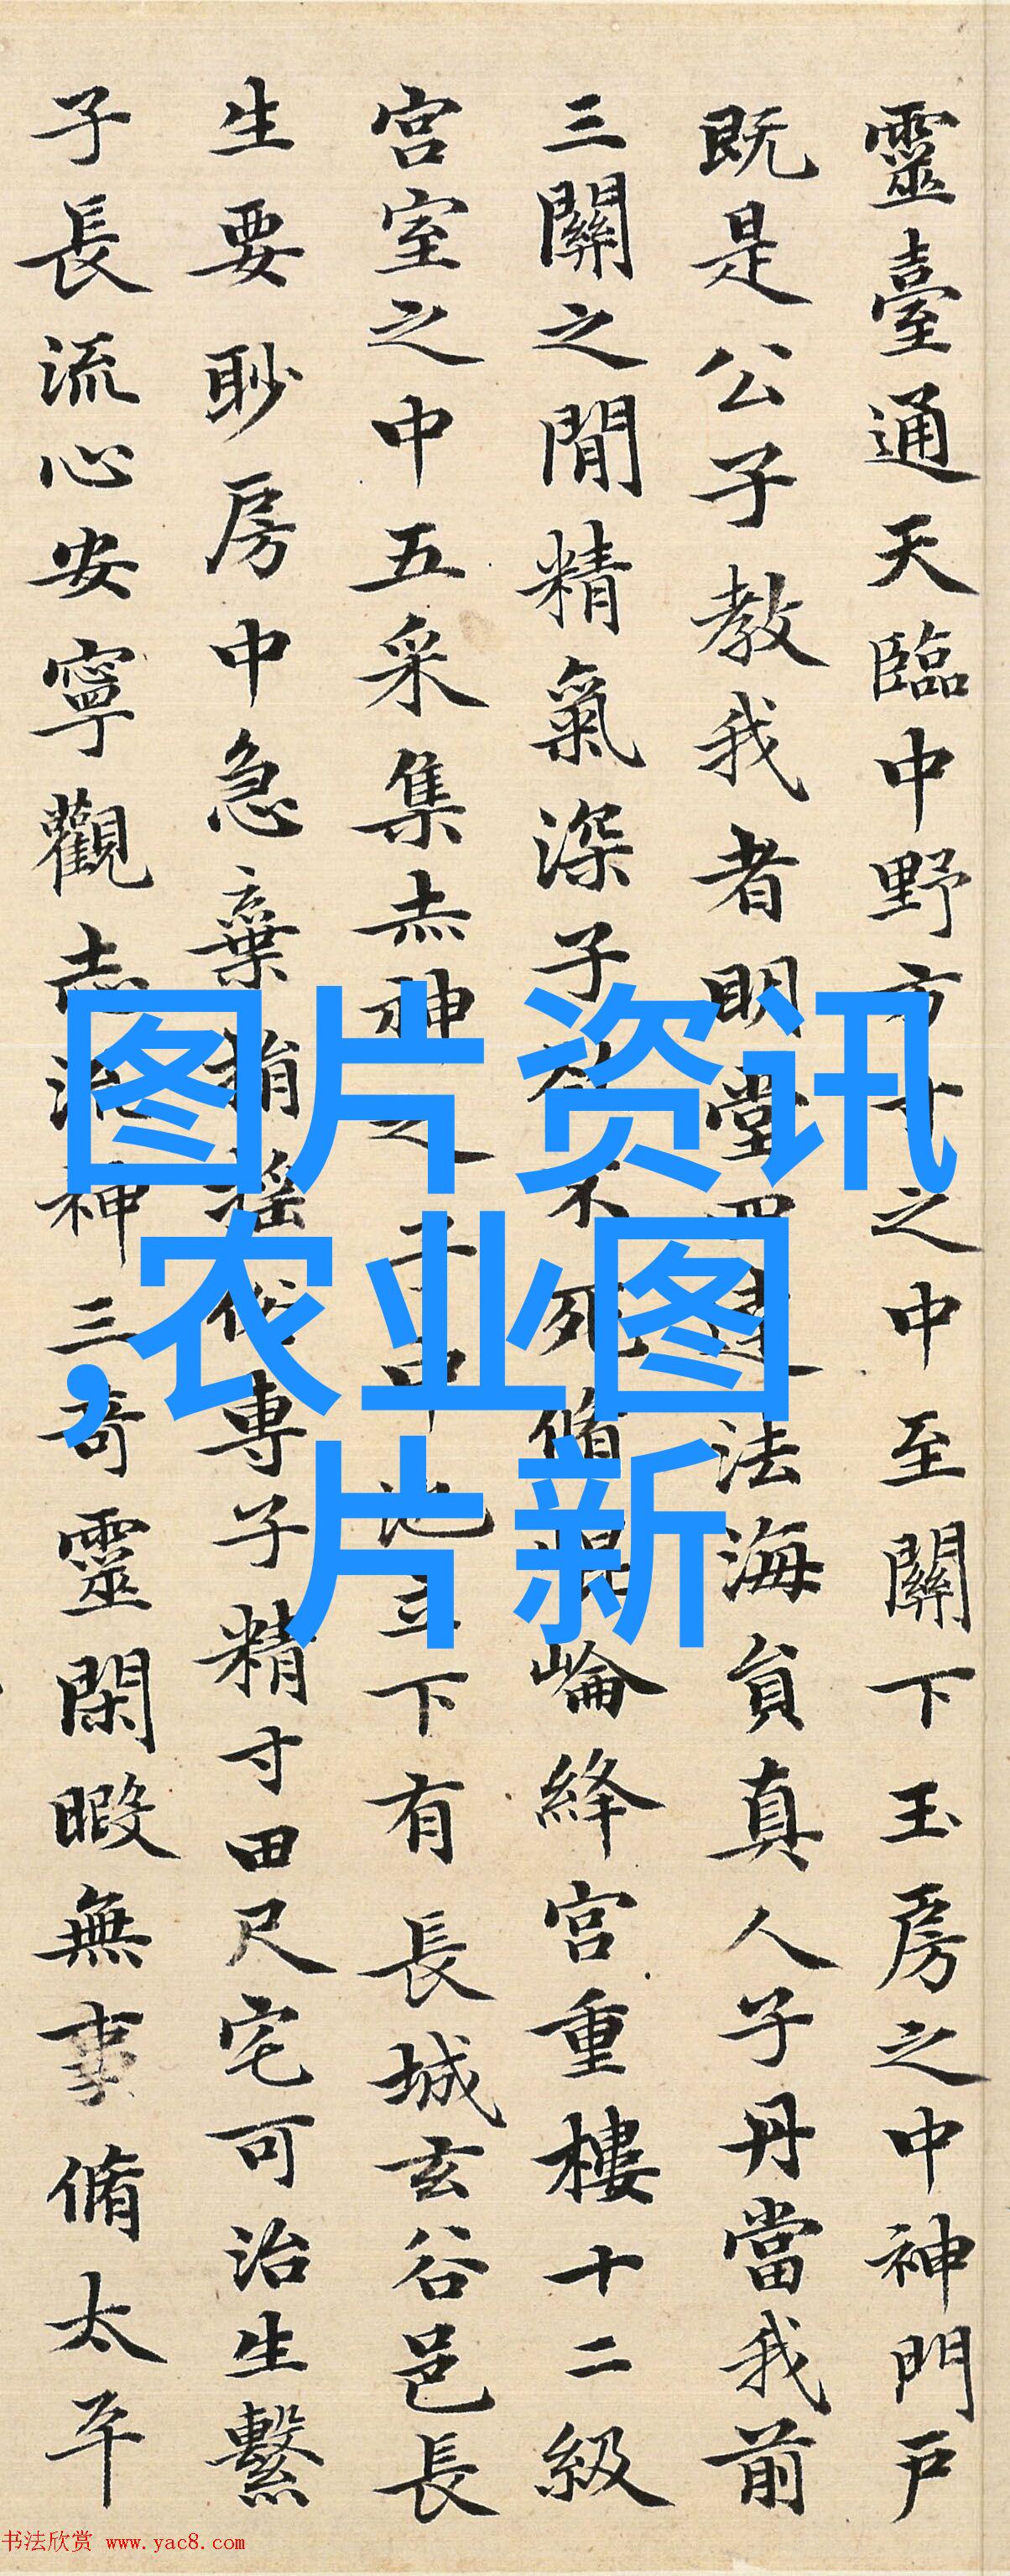 靈臺通天臨中野方寸之中至關下玉房之中神門戶
既是公子教我者明堂四達法海員真人子丹當我前
三關之間精氣深子欲不死脩崑崙絳宮重樓十二級
宮室之中五采集赤神之子中池立下有長城玄谷邑長
生要眇房中急棄捐淫俗專子精寸田尺宅可治生繫
子長流心安寧觀志流神三奇靈閑暇無事脩太平
图片资讯
,农业图
片新
书法欣赏 www.yac8.com